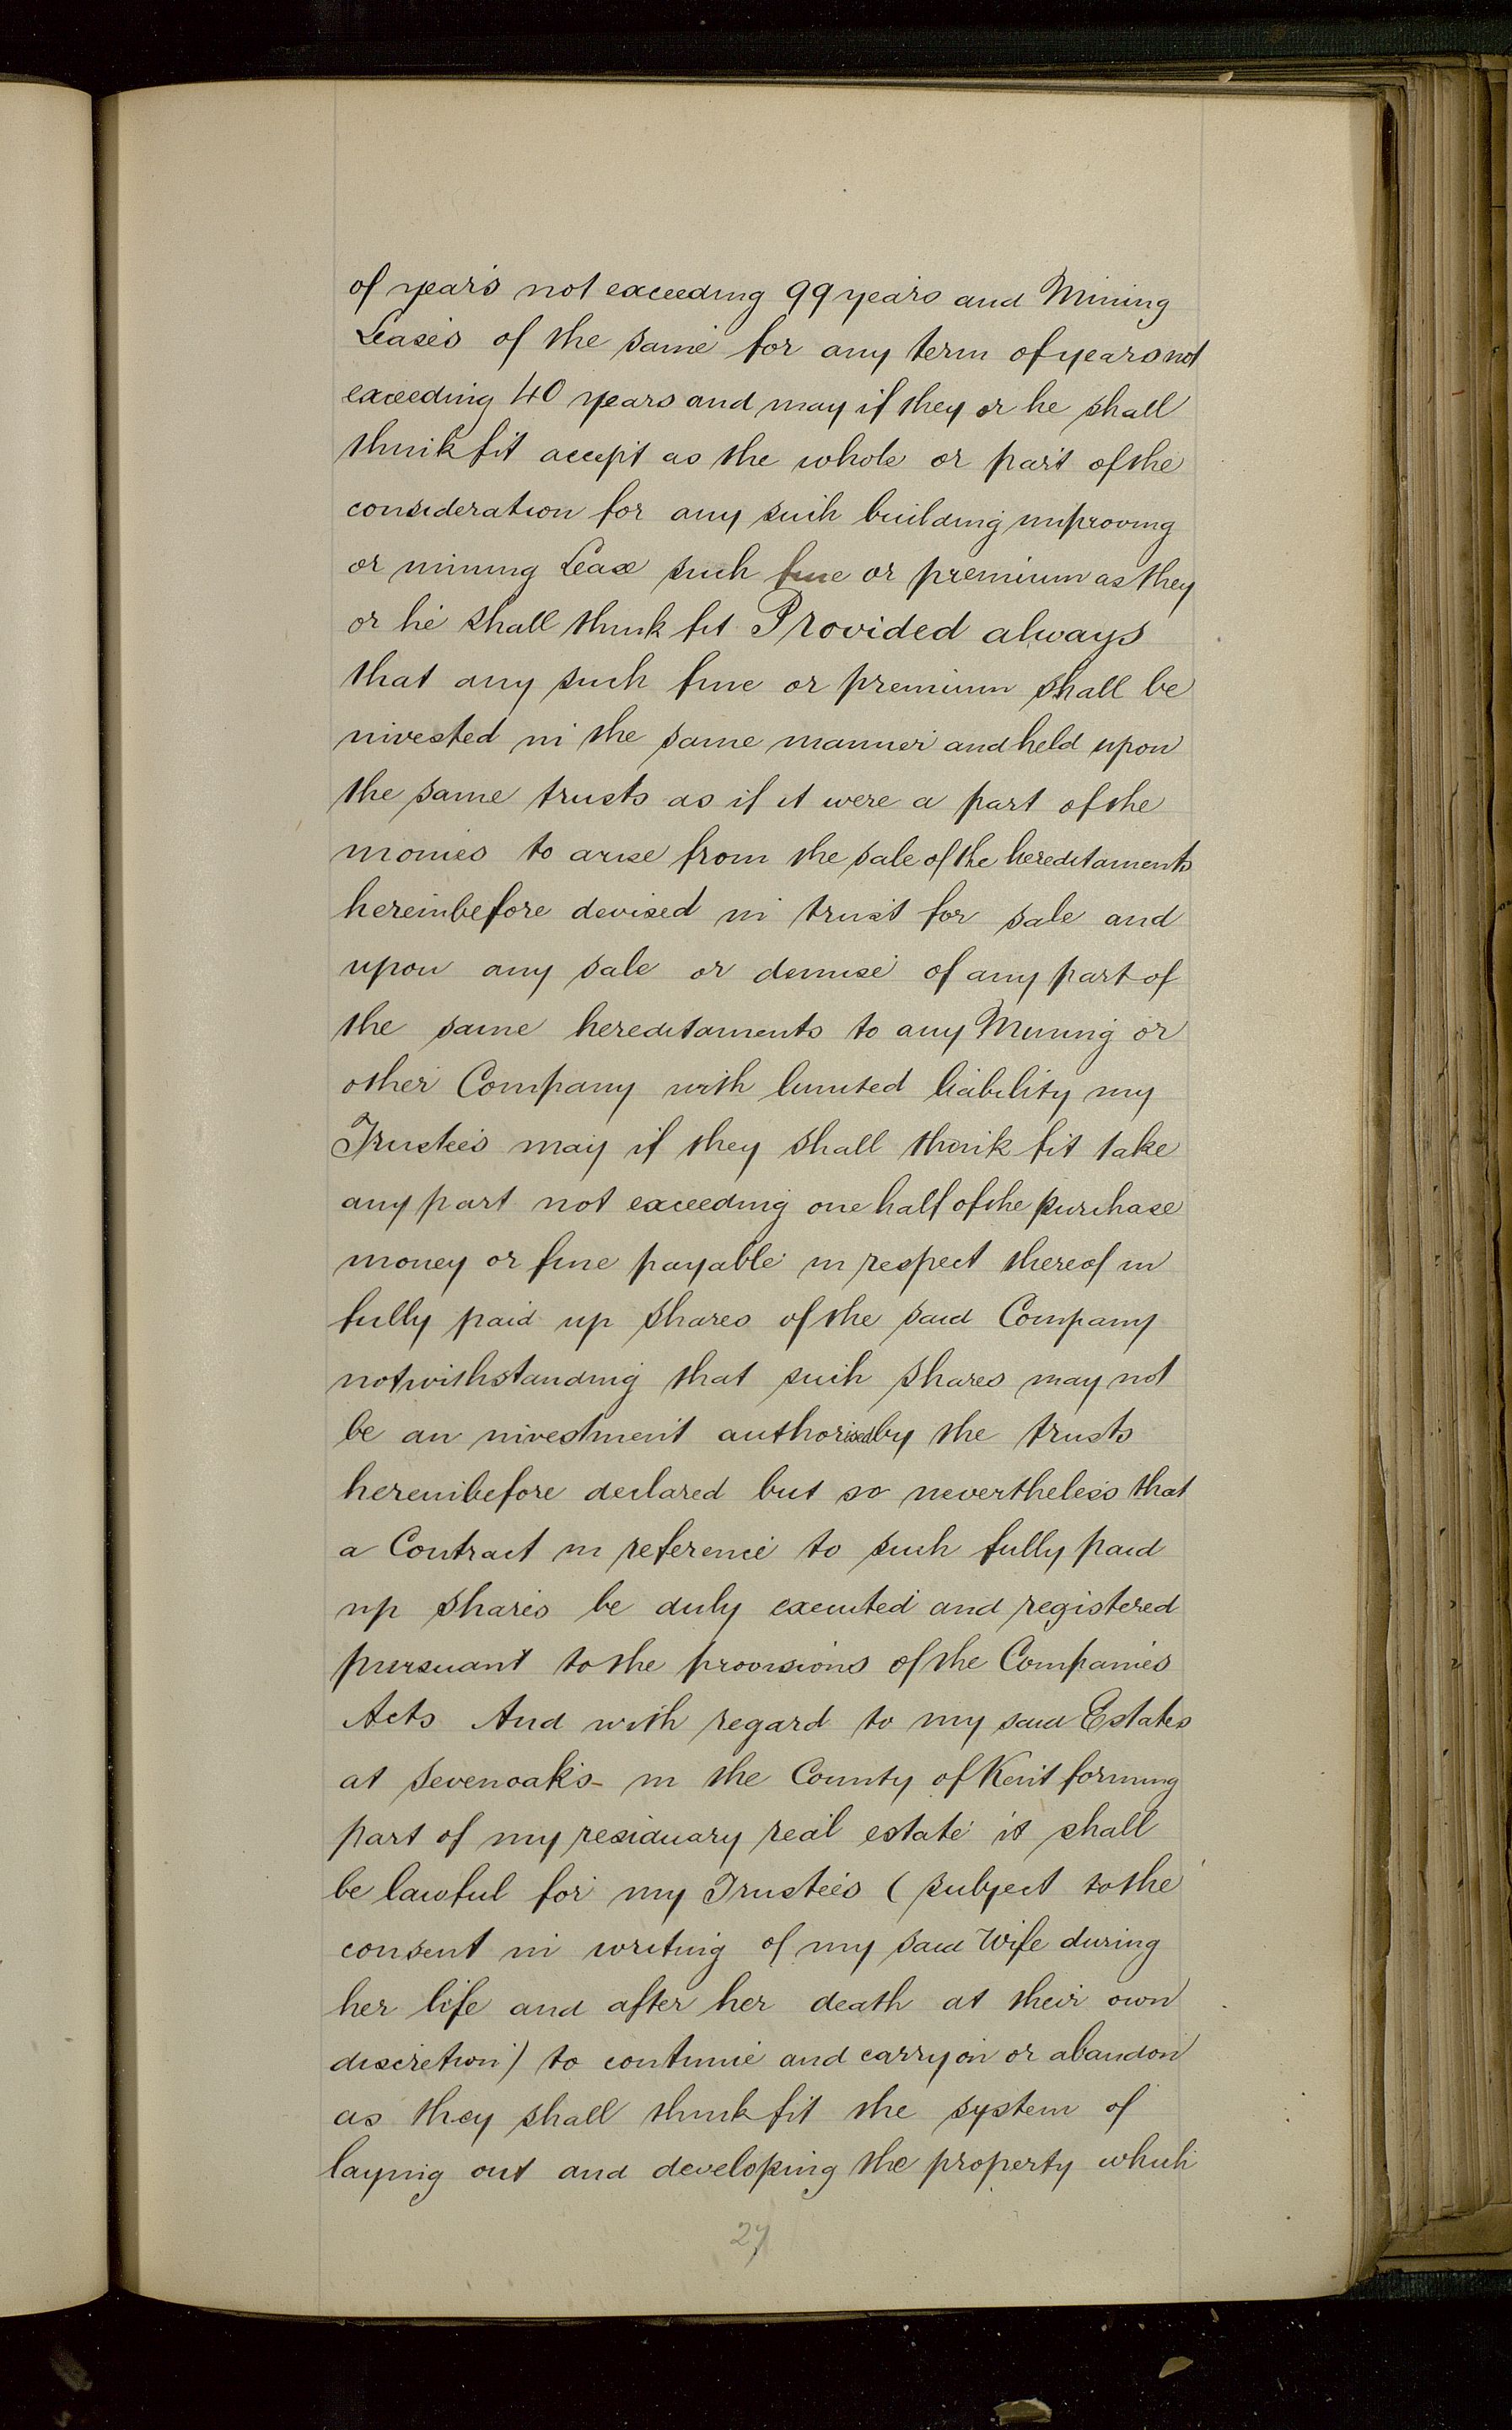 of years not exceeding 99 years and Mining
Leases of the same for any term of years not
exceeding 40 years and may if they or he shall
think fit accept as the whole or part of the
consideration for any such building improving
or mining Lease such fine or premium as they
or he shall think fit Provided always
that any such fine or premium shall be
invested in the same manner and held upon
the same trusts as if it were a part of the
monies to arise from the sale of the hereditaments
hereinbefore devised in trust for sale and
upon any sale or demise of any part of
the same hereditaments to any Mining or
other Company with limited liability my
Trustees may if they shall think fit take
any part not exceeding one half of the purchase
money or fine payable in respect thereof in
fully paid up shares of the said Company
notwithstanding that such shares may not
be an investment authorised by the trusts
hereinbefore declared but so nevertheless that
a Contract in reference to such fully paid
up shares be duly executed and registered
pursuant to the provisions of the Companies
Acts And with regard to my said Estates
at Sevenoaks - in the County of Kent forming
part of my residuary real estate it shall
be lawful for my Trustees (subject to the
consent in writing of my said Wife during
her life and after her death at their own
discretion) to continue and carry on or abandon
as they shall think fit the system of
laying out and developing the property which
27